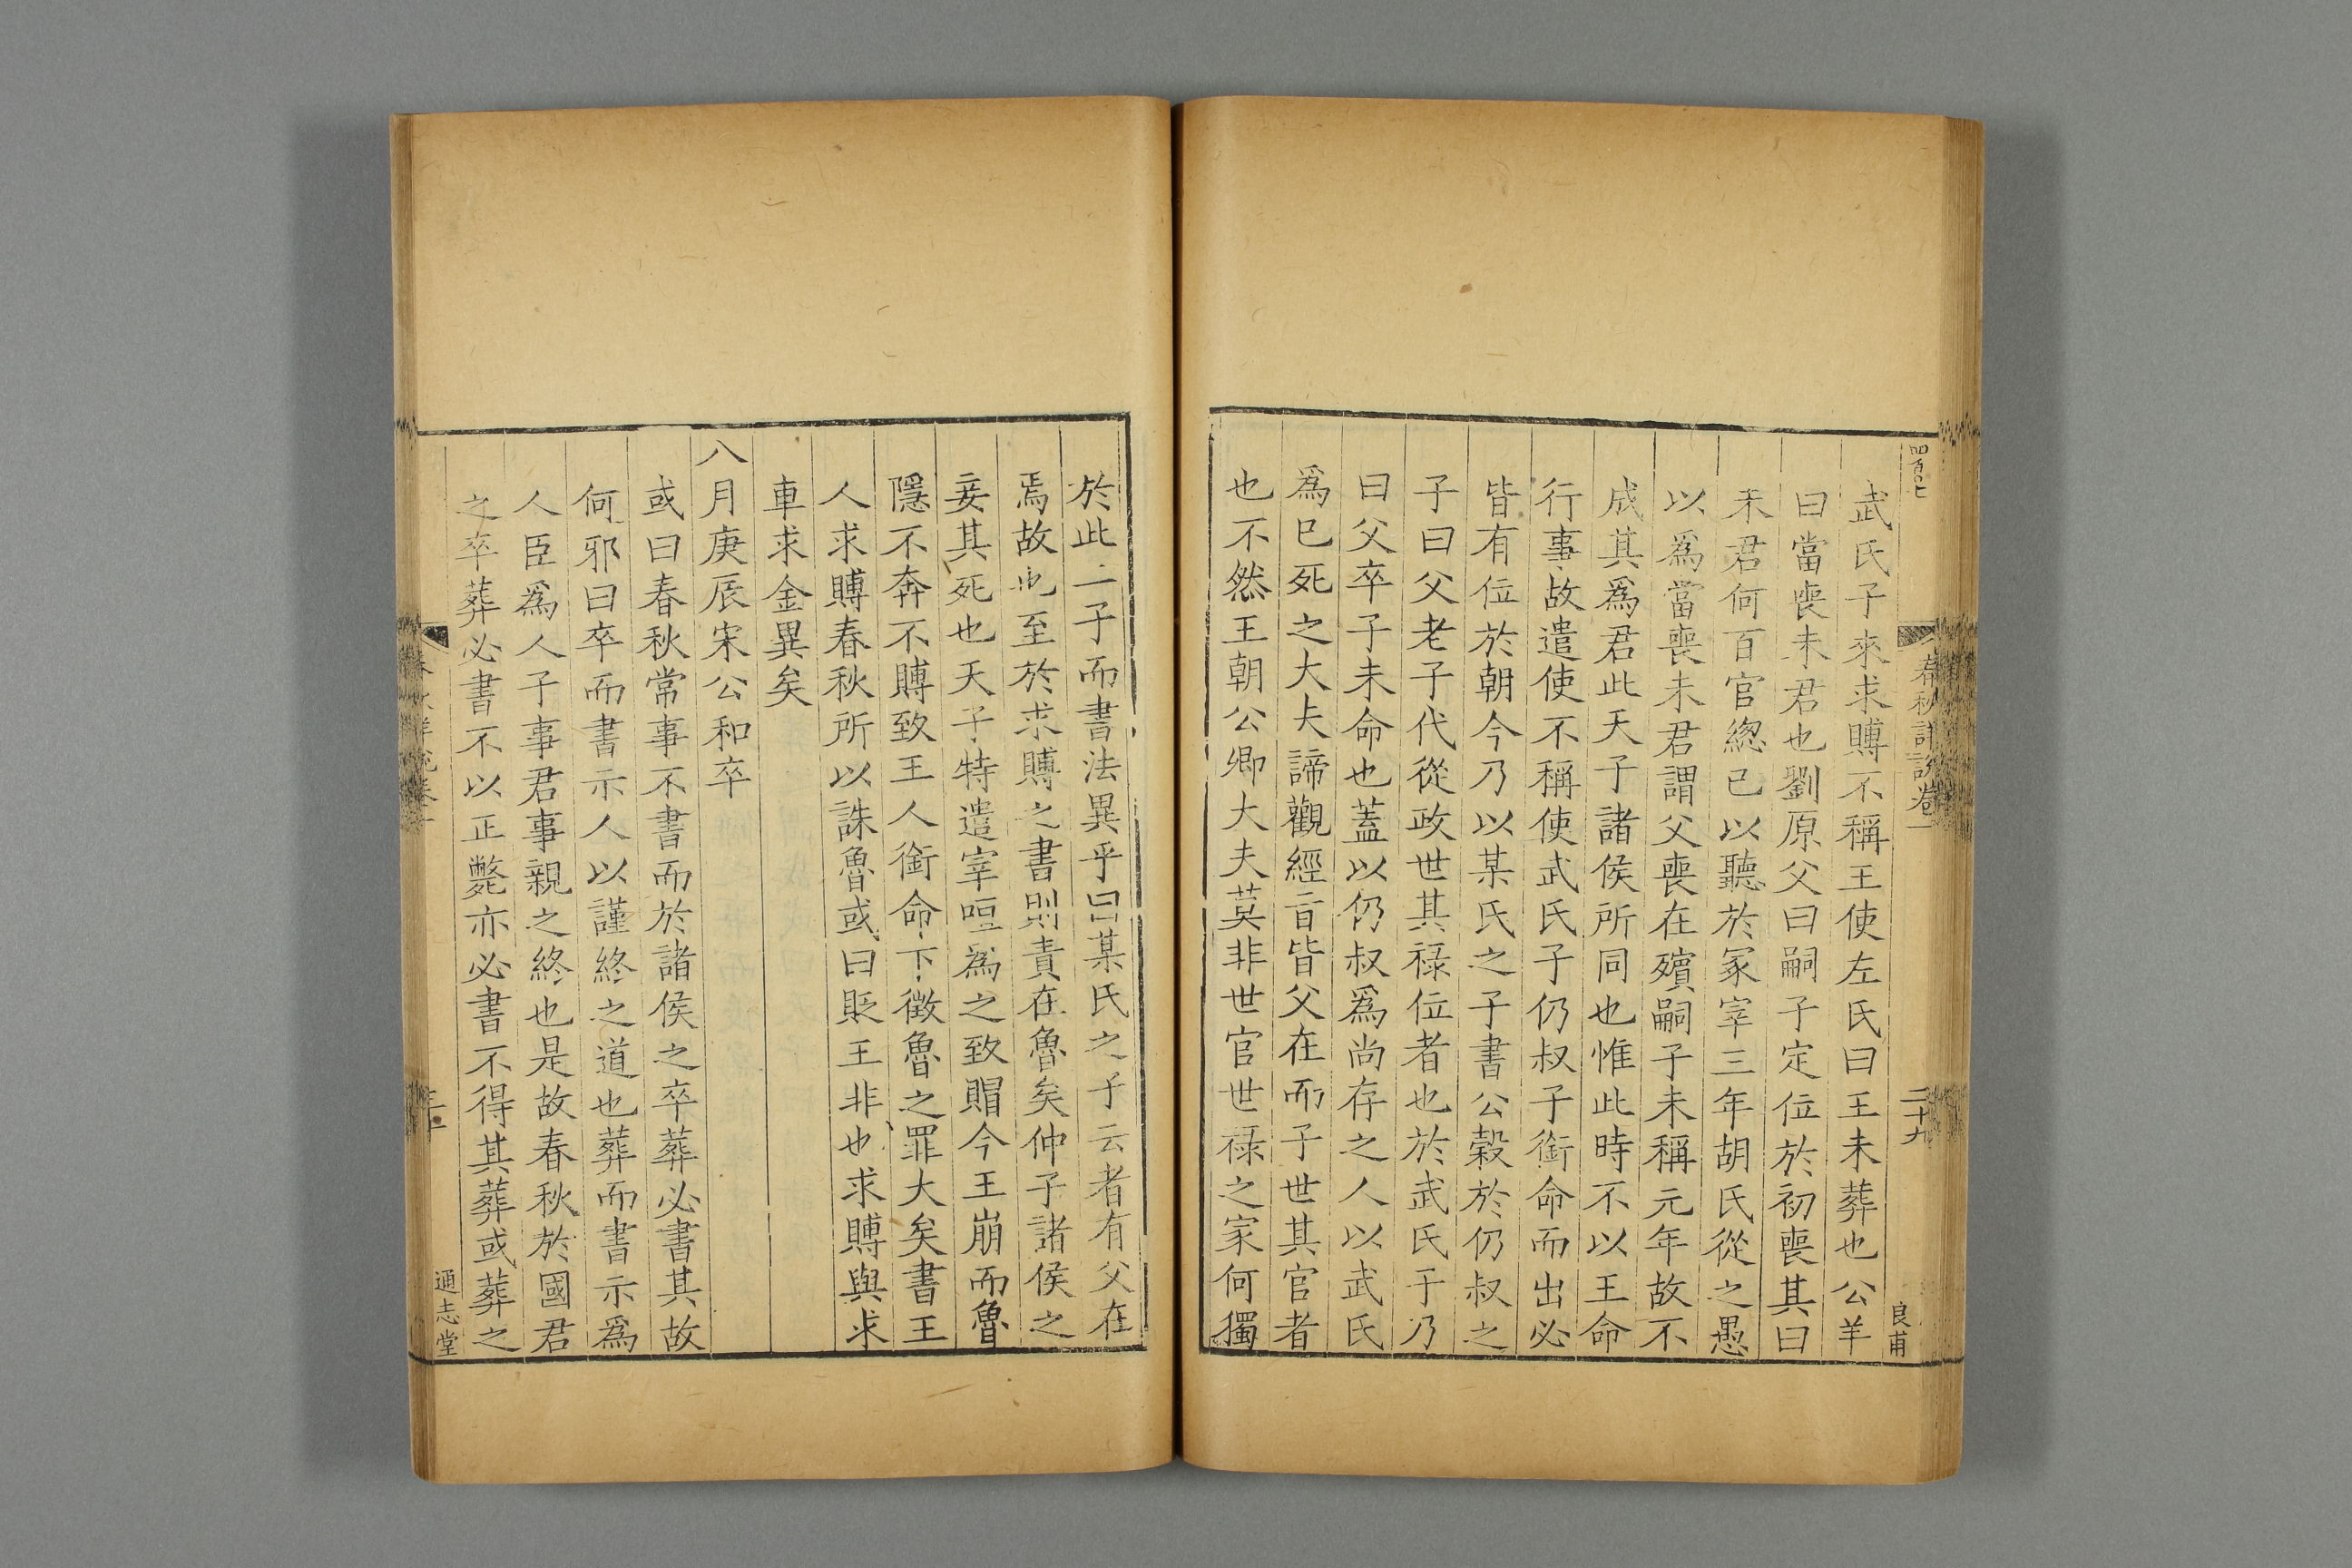 四百七
春秋詳說卷一
二十九
良甫
武氏子來求賻不稱王使左氏曰王未葬也公羊
曰當喪未君也劉原父曰嗣子定位於初喪其曰
未君何百官緫已以聽於冢宰三年胡氏從之愚
以爲當喪未君謂父喪在殯嗣子未稱元年故不
成其爲君此天子諸侯所同也惟此時不以王命
行事故遣使不稱使武氏子仍叔子銜命而出必
皆有位於朝今乃以某氏之子書公榖於仍叔之
子曰父老子代從政世其祿位者也於武氏于乃
曰父卒子未命也蓋以仍叔爲尚存之人以武氏
爲已死之大夫諦觀經旨皆父在而子世其官者
也不然王朝公卿大夫莫非世官世祿之家何獨
於此二子而書法異乎曰某氏之子云者有父在
焉故也至於求賻之書則責在魯矣仲子諸侯之
妾其死也天子特遣宰咺爲之致賵今王崩而魯
隱不奔不賻致王人銜命下徵魯之罪大矣書王
人求賻春秋所以誅魯或曰貶王非也求賻與求
車求金異矣
八月庚辰宋公和卒
或曰春秋常事不書而於諸侯之卒葬必書其故
何邪曰卒而書示人以謹終之道也葬而書示爲
人臣爲人子事君事親之終也是故春秋於國君
之卒葬必書不以正斃亦必書不得其葬或葬之
春秋詳說卷一
三十
通志堂